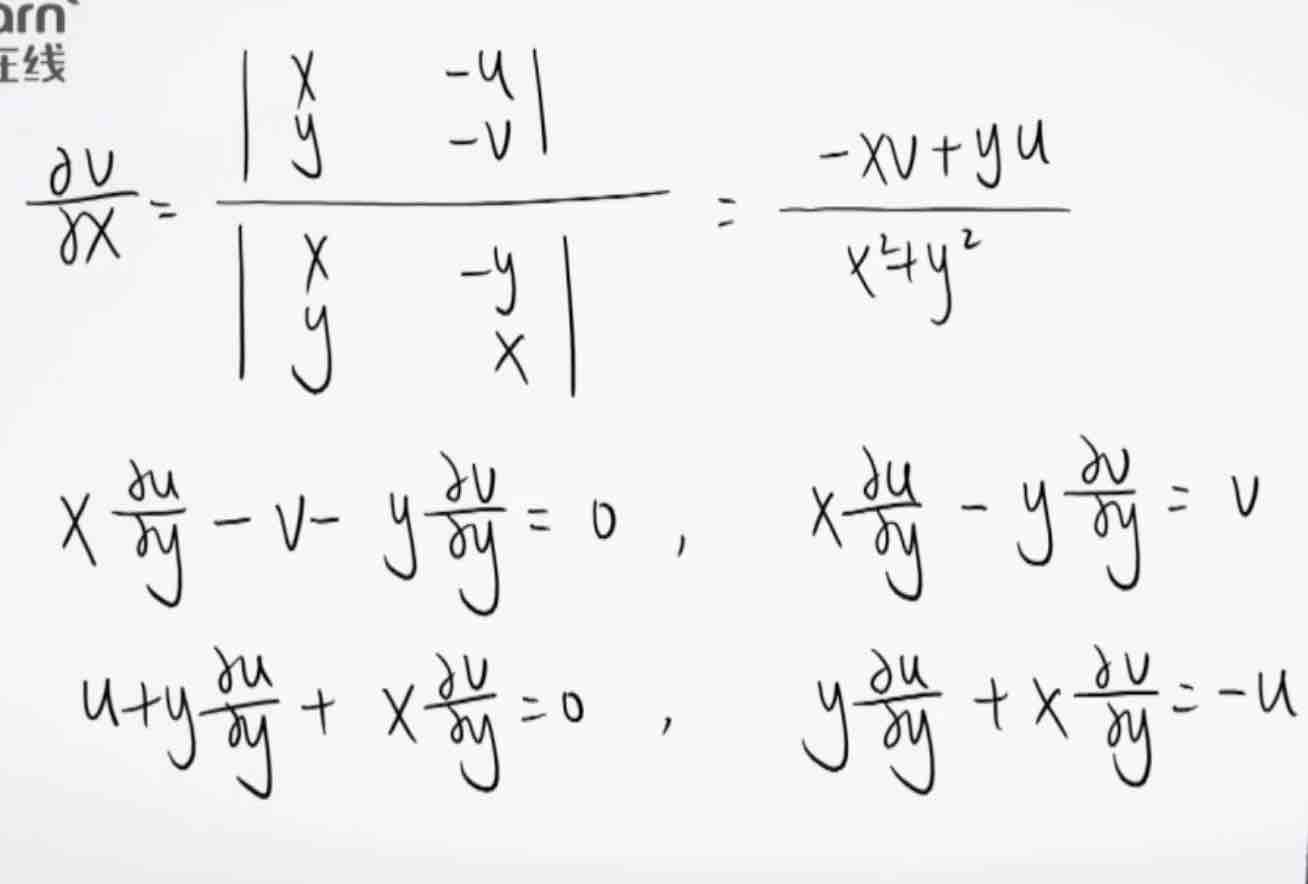 arn
在线
∂v/∂x = | x -u ; y -v | / | x -y ; y x | = (-xv+yu)/(x²+y²)
x ∂u/∂y - v - y ∂v/∂y = 0 , x ∂u/∂y - y ∂v/∂y = v
u + y ∂u/∂y + x ∂v/∂y = 0 , y ∂u/∂y + x ∂v/∂y = -u